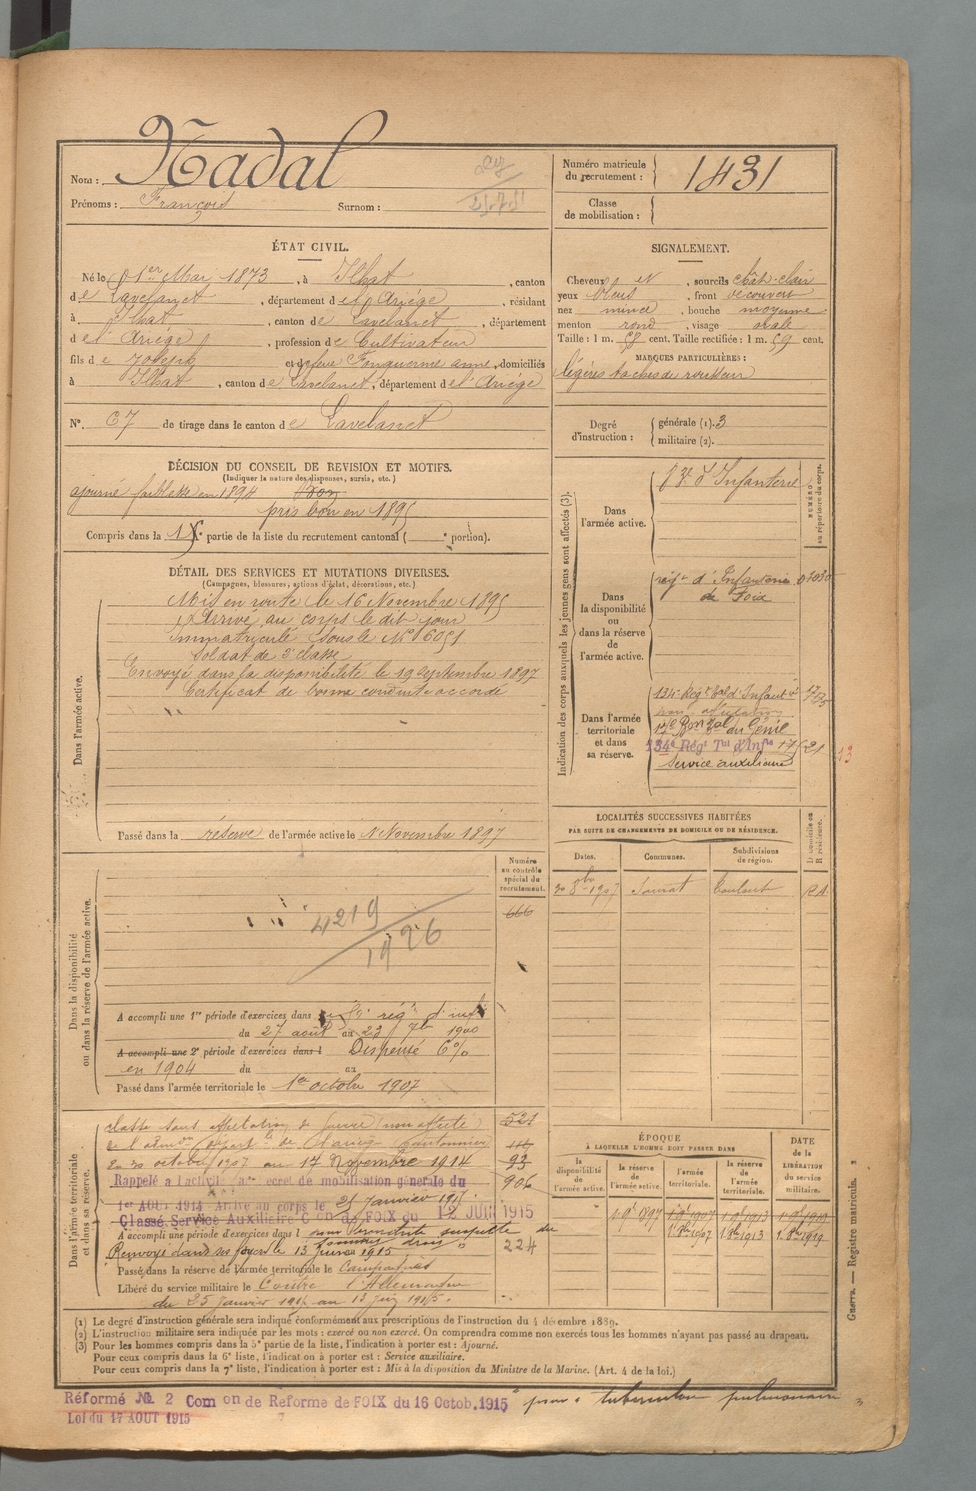 Nom : Nadal
Prénoms : François Surnom :
Numéro matricule du recrutement : 1431
Classe de mobilisation :
ÉTAT CIVIL.
Né le 1er Mai 1873, à Ilhat, canton
de Lavelanet, département de l'Ariége, résidant
à Ilhat, canton de Lavelanet, département
de l'Ariége, profession de Cultivateur
fils de Joseph et de feue Fonquernie anne, domiciliés
à Ilhat, canton de Lavelanet, département de l'Ariége
N°. 67 de tirage dans le canton de Lavelanet
SIGNALEMENT.
Cheveux et, sourcils chât-clair
yeux bleus, front découvert
nez mince, bouche moyenne
menton rond, visage ovale
Taille : 1 m. 58 cent. Taille rectifiée : 1 m. 59 cent.
MARQUES PARTICULIÈRES :
légères taches de rousseur
Degré d'instruction : générale (1). 3
militaire (2).
DÉCISION DU CONSEIL DE REVISION ET MOTIFS.
(Indiquer la nature des dispenses, sursis, etc.)
ajourné faiblesse en 1894
pris bon en 1895
Compris dans la 1e partie de la liste du recrutement cantonal ( e portion).
DÉTAIL DES SERVICES ET MUTATIONS DIVERSES.
(Campagnes, blessures, actions d'éclat, décorations, etc.)
Dans l'armée active.
Mis en route le 16 Novembre 1895
Arrivé au corps le dit jour
Immatriculé sous le N° 6051
Soldat de 2e classe
Envoyé dans la disponibilité le 19 Septembre 1897
Certificat de bonne conduite accordé
Passé dans la réserve de l'armée active le 1 Novembre 1897
Indication des corps auxquels les jeunes gens sont affectés (3).
NUMÉRO au répertoire du corps.
Dans l'armée active.
d'Infanterie
Dans la disponibilité ou dans la réserve de l'armée active.
régt d'Infanterie
de Foix
Dans l'armée territoriale et dans sa réserve.
134e Régt tal d'Infanterie
non affectation
17e Bon tal du Génie
134e Régt Tal d'Infie
Service auxiliaire
13
LOCALITÉS SUCCESSIVES HABITÉES
PAR SUITE DE CHANGEMENTS DE DOMICILE OU DE RÉSIDENCE.
Dates. Communes. Subdivisions de région. D domicile ou R résidence.
20 8bre 1907
Dans la disponibilité ou dans la réserve de l'armée active.
Numéro au contrôle spécial du recrutement.
666
4219
1926
A accompli une 1re période d'exercices dans
régt d'infie
du 27 août au 23 7bre 1900
A accompli une 2e période d'exercices dans l Dispensé 6%
en 1904 du au
Passé dans l'armée territoriale le 1er octobre 1907
Dans l'armée territoriale et dans sa réserve.
classé sans affectation
521
du 20 octobre 1907 au 17 Novembre 1914
93
Rappelé à l'activité décret de mobilisation générale du
906
1er AOUT 1914 Arrivé au corps le 25 Janvier 1915
Classé Service Auxiliaire Con de FOIX du 12 JUIN 1915
A accompli une période d'exercices dans l
Renvoyé dans ses foyers le 13 juin 1915
224
Passé dans la réserve de l'armée territoriale le Campagnes
Libéré du service militaire le Contre l'Allemagne
du 25 Janvier 1915 au 13 Juin 1915.
ÉPOQUE
À LAQUELLE L'HOMME DOIT PASSER DANS
DATE DE LA LIBÉRATION du service militaire.
la disponibilité de l'armée active. la réserve de l'armée active. l'armée territoriale. la réserve de l'armée territoriale.
Guerre. — Registre matricule.
(1) Le degré d'instruction générale sera indiqué conformément aux prescriptions de l'instruction du 4 décembre 1889.
(2) L'instruction militaire sera indiquée par les mots : exercé ou non exercé. On comprendra comme non exercés tous les hommes n'ayant pas passé au drapeau.
(3) Pour les hommes compris dans la 5e partie de la liste, l'indication à porter est : Ajourné.
Pour ceux compris dans la 6e liste, l'indication à porter est : Service auxiliaire.
Pour ceux compris dans la 7e liste, l'indication à porter est : Mis à la disposition du Ministre de la Marine. (Art. 4 de la loi.)
Réformé No 2 Com on de Reforme de FOIX du 16 Octob. 1915 pour tuberculose pulmonaire
Loi du 17 AOUT 1915